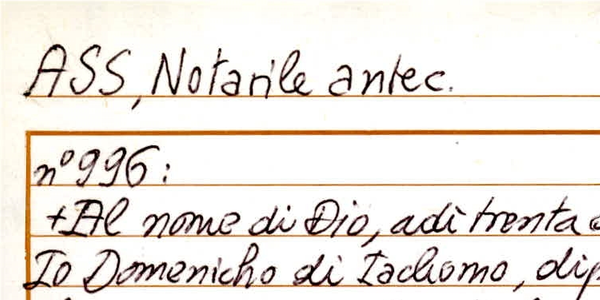 ASS, Notarile antec.
n° 996:
+ Al nome di Dio, adì trenta
Io Domenicho di Iachomo, dip